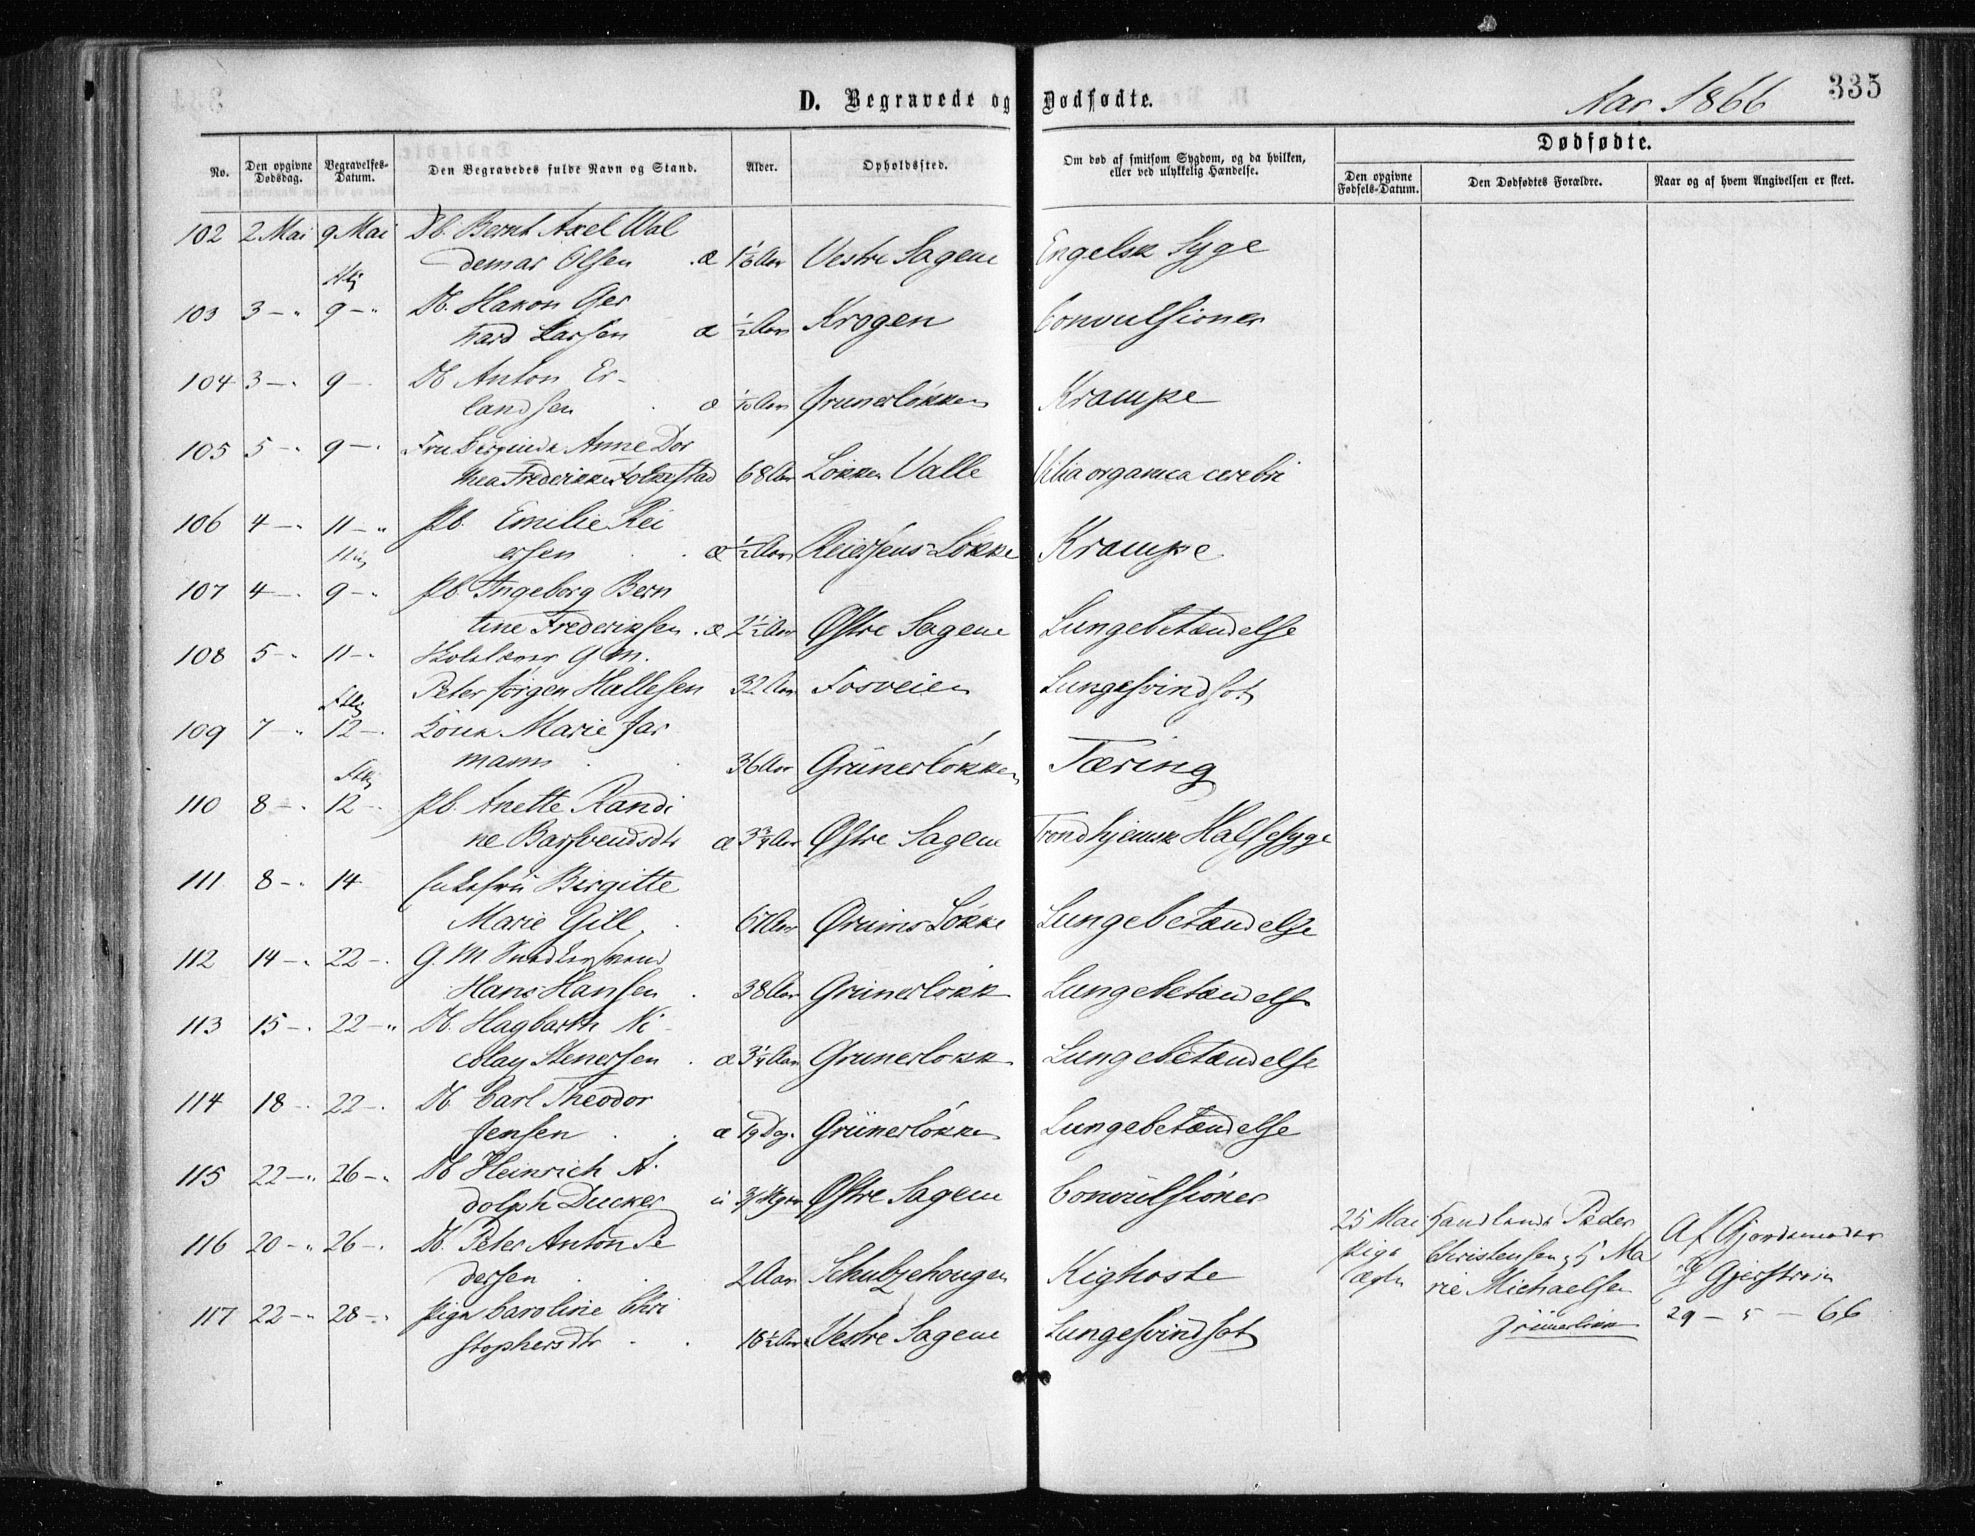 D. Begravede og Dødfødte.
Aar 1866
335
No.
Den opgivne Dødsdag.
Begravelses-Datum.
Den Begravedes fulde Navn og Stand.
Alder.
Opholdssted.
Om død af smitsom Sygdom, og da hvilken,
eller ved ulykkelig Hændelse.
Dødfødte.
Den opgivne Fødsels-Datum.
Den Dødfødtes Forældre.
Naar og af hvem Angivelsen er skeet.
102 2 Mai 9 Mai Db. Bernt Axel Wal
demar Olsen æ Aar Vestre Sagene Engelsk Syge
103 3 – " 9 – " Db. Hakon Ger
hard Larsen æ ½ Aar Krogen Convulsioner
104 3 – " 9 – Db Anton Er-
landsen æ 1/10 Aar Grunerløkken Krampe
105 5 – " 9 – " Fru Anne Dor
thea Frederikke Folkestad 68 Aar Løkken Valle Vitia organica cerebri
106 4 – " 11 – " Pb. Emilie Rei
ersen æ ½ Aar Reiersens Løkke Krampe
107 4 – " 9 – " Pb. Ingeborg Bern
tine Frederiksen æ 2½ Aar Østre Sagene Lungebetændelse
108 5 – " 11 – " G. M.
Peter Jørgen Hallesen 32 Aar Fosveien Lungesvindsot
109 7 – " 12 – " Kone Marie Jar
mann 36 Aar Grünerløkken Tæring
110 8 – " 12 – " Pb. Anette Randi
ne æ 3¾ Aar Østre Sagene Trondhjemsk Halssyge
111 8 – " 14 Enkefru Birgitte
Marie Gill 67 Aar Ørums Løkke Lungebetændelse
112 14 – " 22 – " G. M.
Hans Hansen 38 Aar Grunerløkk Lungebetændelse
113 15 – " 22 – " Db. Hagbarth Ni-
colay Stenersen æ 3¼ Aar Grunerløkk Lungebetændelse
114 18 – " 22 – " Db. Carl Theodor
Jensen æ Dag. Grünerløkken Lungebetændelse
115 22 – " 26 – " Db Heinrich A.
dolph Ducker Østre Sagene Convulsioner
116 20 – " 26 – " Db. Peter Anton Pe
dersen 2 Aar Schultzehougen Kighoste
117 22 – " 28 – " Pige Caroline Chri
stophersdtr 18½ Aar Vestre Sagene Lungesvindsot
25 Mai
Pige
Handlende Peder
Christensen og H Ma
rie Michaelsen
Grünerløkk
Af Gjordemoder
29 – 5 – 66